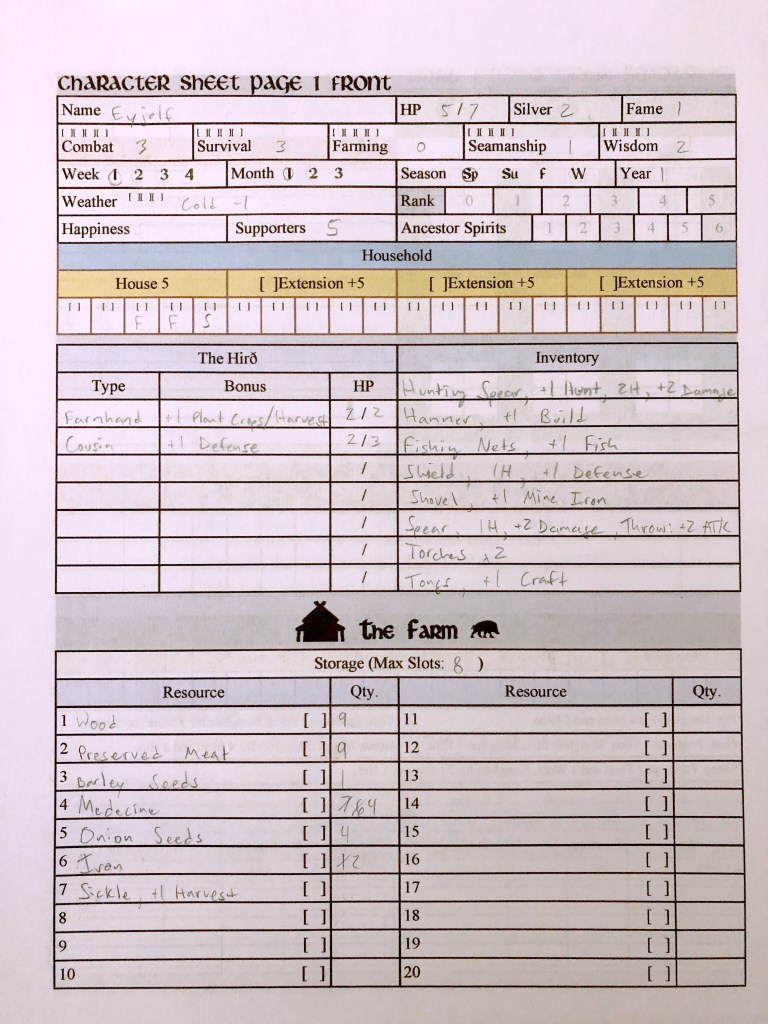 Character Sheet Page 1 Front
Name Eyjolf HP 5/7 Silver 2 Fame 1
[ ][ ][ ][ ] [ ][ ][ ][ ] [ ][ ][ ][ ] [ ][ ][ ][ ] [ ][ ][ ][ ]
Combat 3 Survival 3 Farming 0 Seamanship 1 Wisdom 2
Week 1 2 3 4 Month 1 2 3 Season Sp Su F W Year 1
Weather [ ][ ][ ] Cold -1 Rank 0 1 2 3 4 5
Happiness Supporters 5 Ancestor Spirits 1 2 3 4 5 6
Household
House 5 [ ]Extension +5 [ ]Extension +5 [ ]Extension +5
[ ] [ ] [ ] [ ] [ ] [ ] [ ] [ ] [ ] [ ] [ ] [ ] [ ] [ ] [ ] [ ] [ ] [ ] [ ] [ ]
F F S
The Hirð Inventory
Type Bonus HP Hunting Spear, +1 Hunt, 2H, +2 Damage
Farmhand +1 Plant Crops/Harvest 2/2 Hammer, +1 Build
Cousin +1 Defense 2/3 Fishing Nets, +1 Fish
/ Shield, 1H, +1 Defense
/ Shovel, +1 Mine Iron
/ Spear, 1H, +2 Damage, Throw: +2 ATK
/ Torches x2
/ Tongs, +1 Craft
The Farm
Storage (Max Slots: 8 )
Resource Qty. Resource Qty.
1 Wood [ ] 9 11 [ ]
2 Preserved Meat [ ] 9 12 [ ]
3 Barley Seeds [ ] 1 13 [ ]
4 Medecine [ ] 4 14 [ ]
5 Onion Seeds [ ] 4 15 [ ]
6 Iron [ ] 2 16 [ ]
7 Sickle, +1 Harvest [ ] 17 [ ]
8 [ ] 18 [ ]
9 [ ] 19 [ ]
10 [ ] 20 [ ]